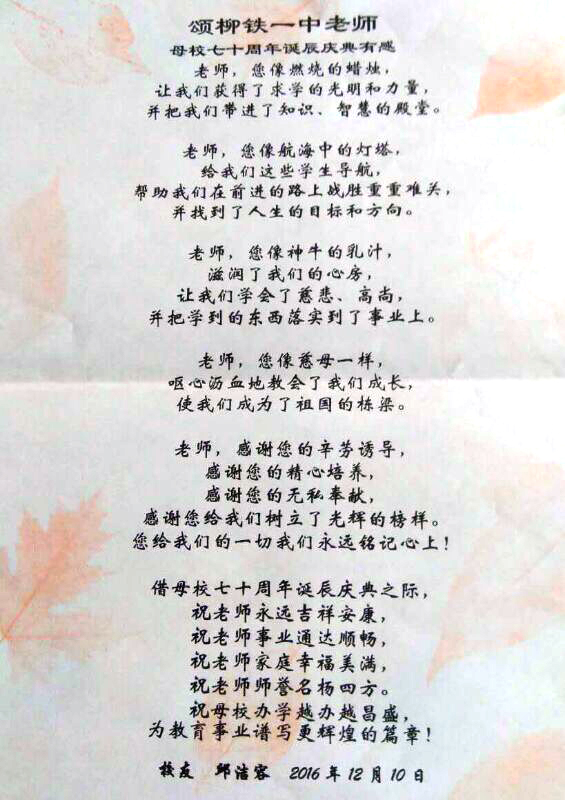 颂柳铁一中老师
母校七十周年诞辰庆典有感
老师，您像燃烧的蜡烛，
让我们获得了求学的光明和力量，
并把我们带进了知识、智慧的殿堂。
老师，您像航海中的灯塔，
给我们这些学生导航，
帮助我们在前进的路上战胜重重难关，
并找到了人生的目标和方向。
老师，您像神牛的乳汁，
滋润了我们的心房，
让我们学会了慈悲、高尚，
并把学到的东西落实到了事业上。
老师，您像慈母一样，
呕心沥血地教会了我们成长，
使我们成为了祖国的栋梁。
老师，感谢您的辛劳诱导，
感谢您的精心培养，
感谢您的无私奉献，
感谢您给我们树立了光辉的榜样。
您给我们的一切我们永远铭记心上！
借母校七十周年诞辰庆典之际，
祝老师永远吉祥安康，
祝老师事业通达顺畅，
祝老师家庭幸福美满，
祝老师师誉名杨四方。
祝母校办学越办越昌盛，
为教育事业谱写更辉煌的篇章！
校友 邱洁容 2016年12月10日